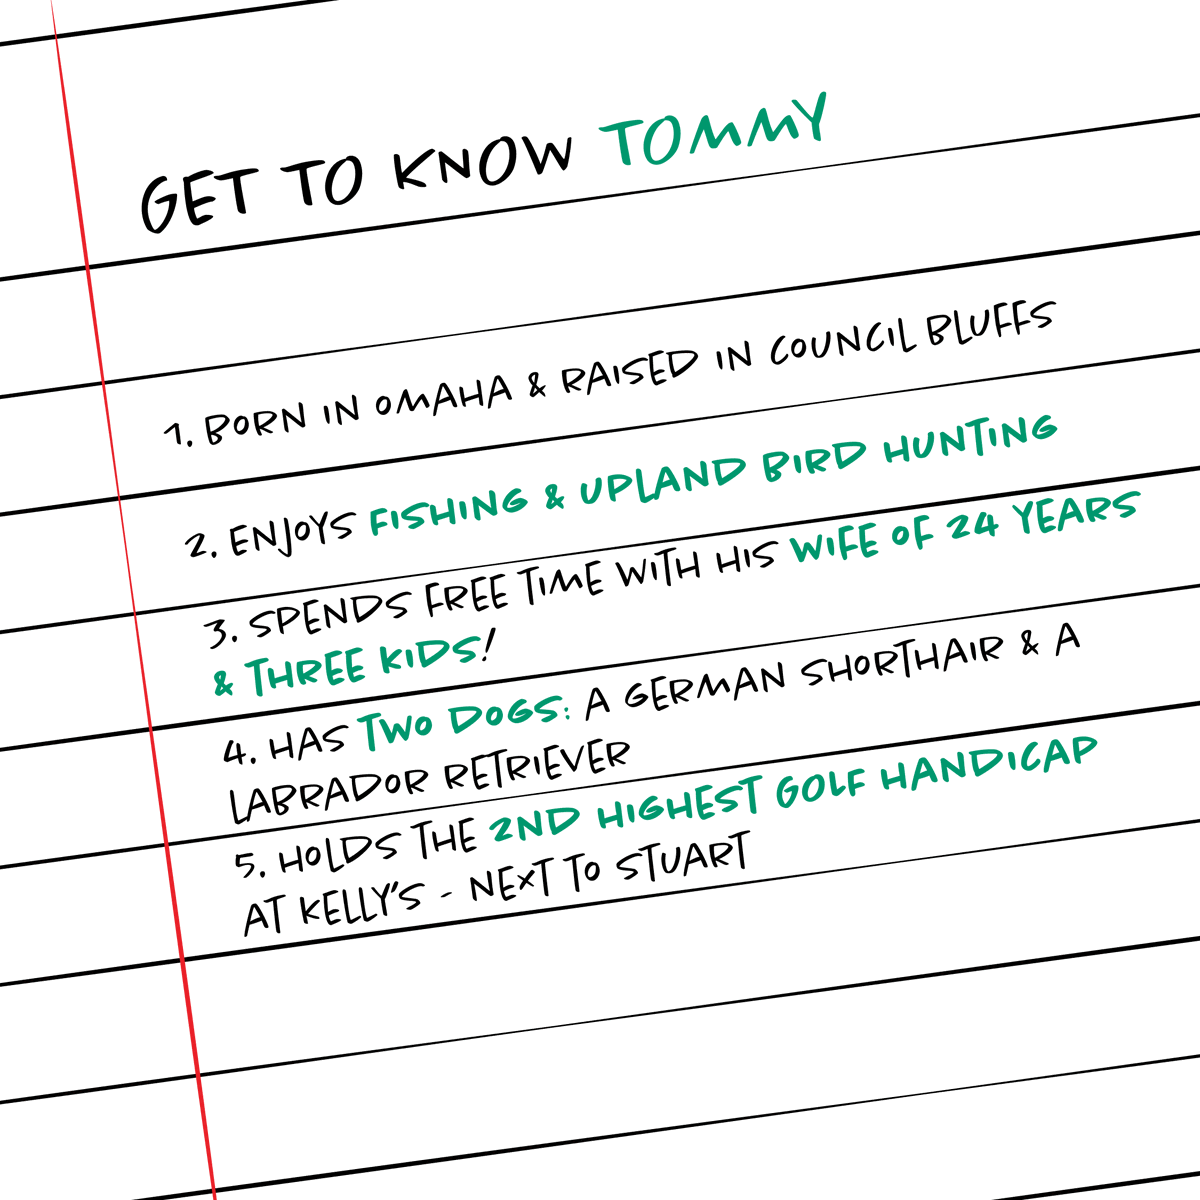 GET TO KNOW TOMMY
1. BORN IN OMAHA & RAISED IN COUNCIL BLUFFS
2. ENJOYS FISHING & UPLAND BIRD HUNTING
3. SPENDS FREE TIME WITH HIS WIFE OF 24 YEARS
& THREE KIDS!
4. HAS TWO DOGS: A GERMAN SHORTHAIR & A
LABRADOR RETRIEVER
5. HOLDS THE 2ND HIGHEST GOLF HANDICAP
AT KELLY'S - NEXT TO STUART